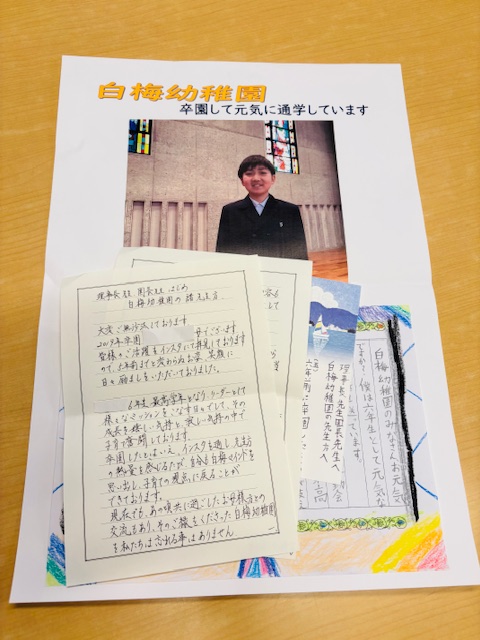 白梅幼稚園
卒園して元気に通学しています
理事長先生 園長先生 はじめ
白梅幼稚園の諸先生方
大変ご無沙汰しております
2019年卒園
母でございます
皆様のご活躍をインスタにて拝見しております
ので、5年前までと変わらぬお姿、笑顔に
日々励ましをいただいておりました。
6年生、最高学年となり、リーダーとして
様々なミッションをこなす日々でして、その
成長を嬉しい気持と寂しい気持の中で
子育て奮闘しております。
卒園したとはいえ、インスタを通し先生方
の熱量を感じるたび、自分も白梅マインドを
思い出し、子育ての視点に戻ることが
できております。
現在でも、あの頃共に過ごしたお母様方との
交流もあり、そのご縁をくださった白梅幼稚園
を私たちは忘れる事はありません。
理事長先生園長先生へ
白梅幼稚園の先生方へ
白梅幼稚園のみなさんお元気
ですか?僕は六年生として元気な